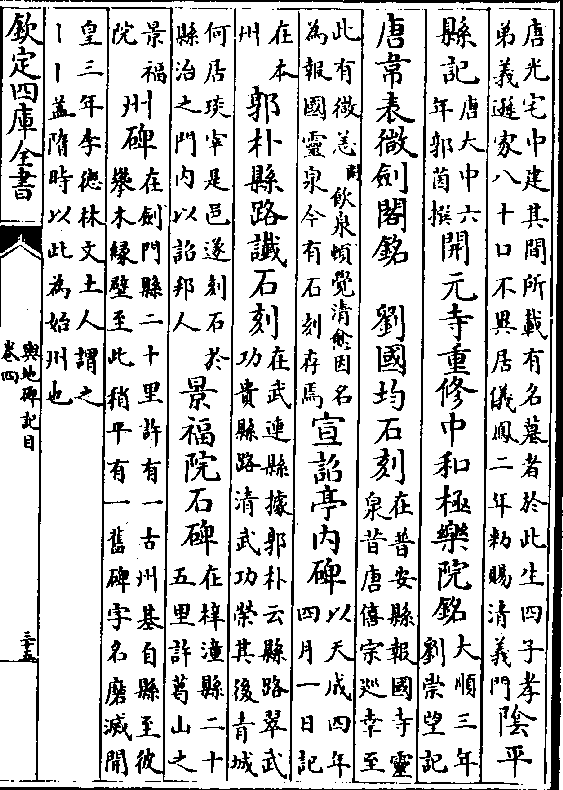 唐光宅中建其間所載有名墓者於此生四子孝
弟義遜家八十口不異居儀鳳二年勅賜清義門
陰平
縣記
唐大中六
年郭茵撰
開元寺重修中和極樂院銘
大順三年
劉崇望記
唐韋表微劍閣銘　劉國均石刻
在普安縣報國寺靈
泉昔唐僖宗巡幸至
此有微恙飲泉頓覺清愈因名
為報國靈泉今有石刻存焉
宣詔亭内碑
以天成四年
四月一日記
在本
州
郭朴縣路讖石刻
在武連縣據郭朴云縣路翠武
功貴縣路清武功榮其後青城
何居琰宰是邑遂刻石於
縣治之門内以詔邦人
景福院石碑
在梓潼縣二十
五里許葛山之
景福
院
州碑
在劍門縣二十里許有一古州基自縣至彼
攀木縁壁至此稍平有一舊碑字名磨滅開
皇三年李徳林文土人謂之
丨丨葢隋時以此為始州也
欽定四庫全書
輿地碑記目
卷四
三十五